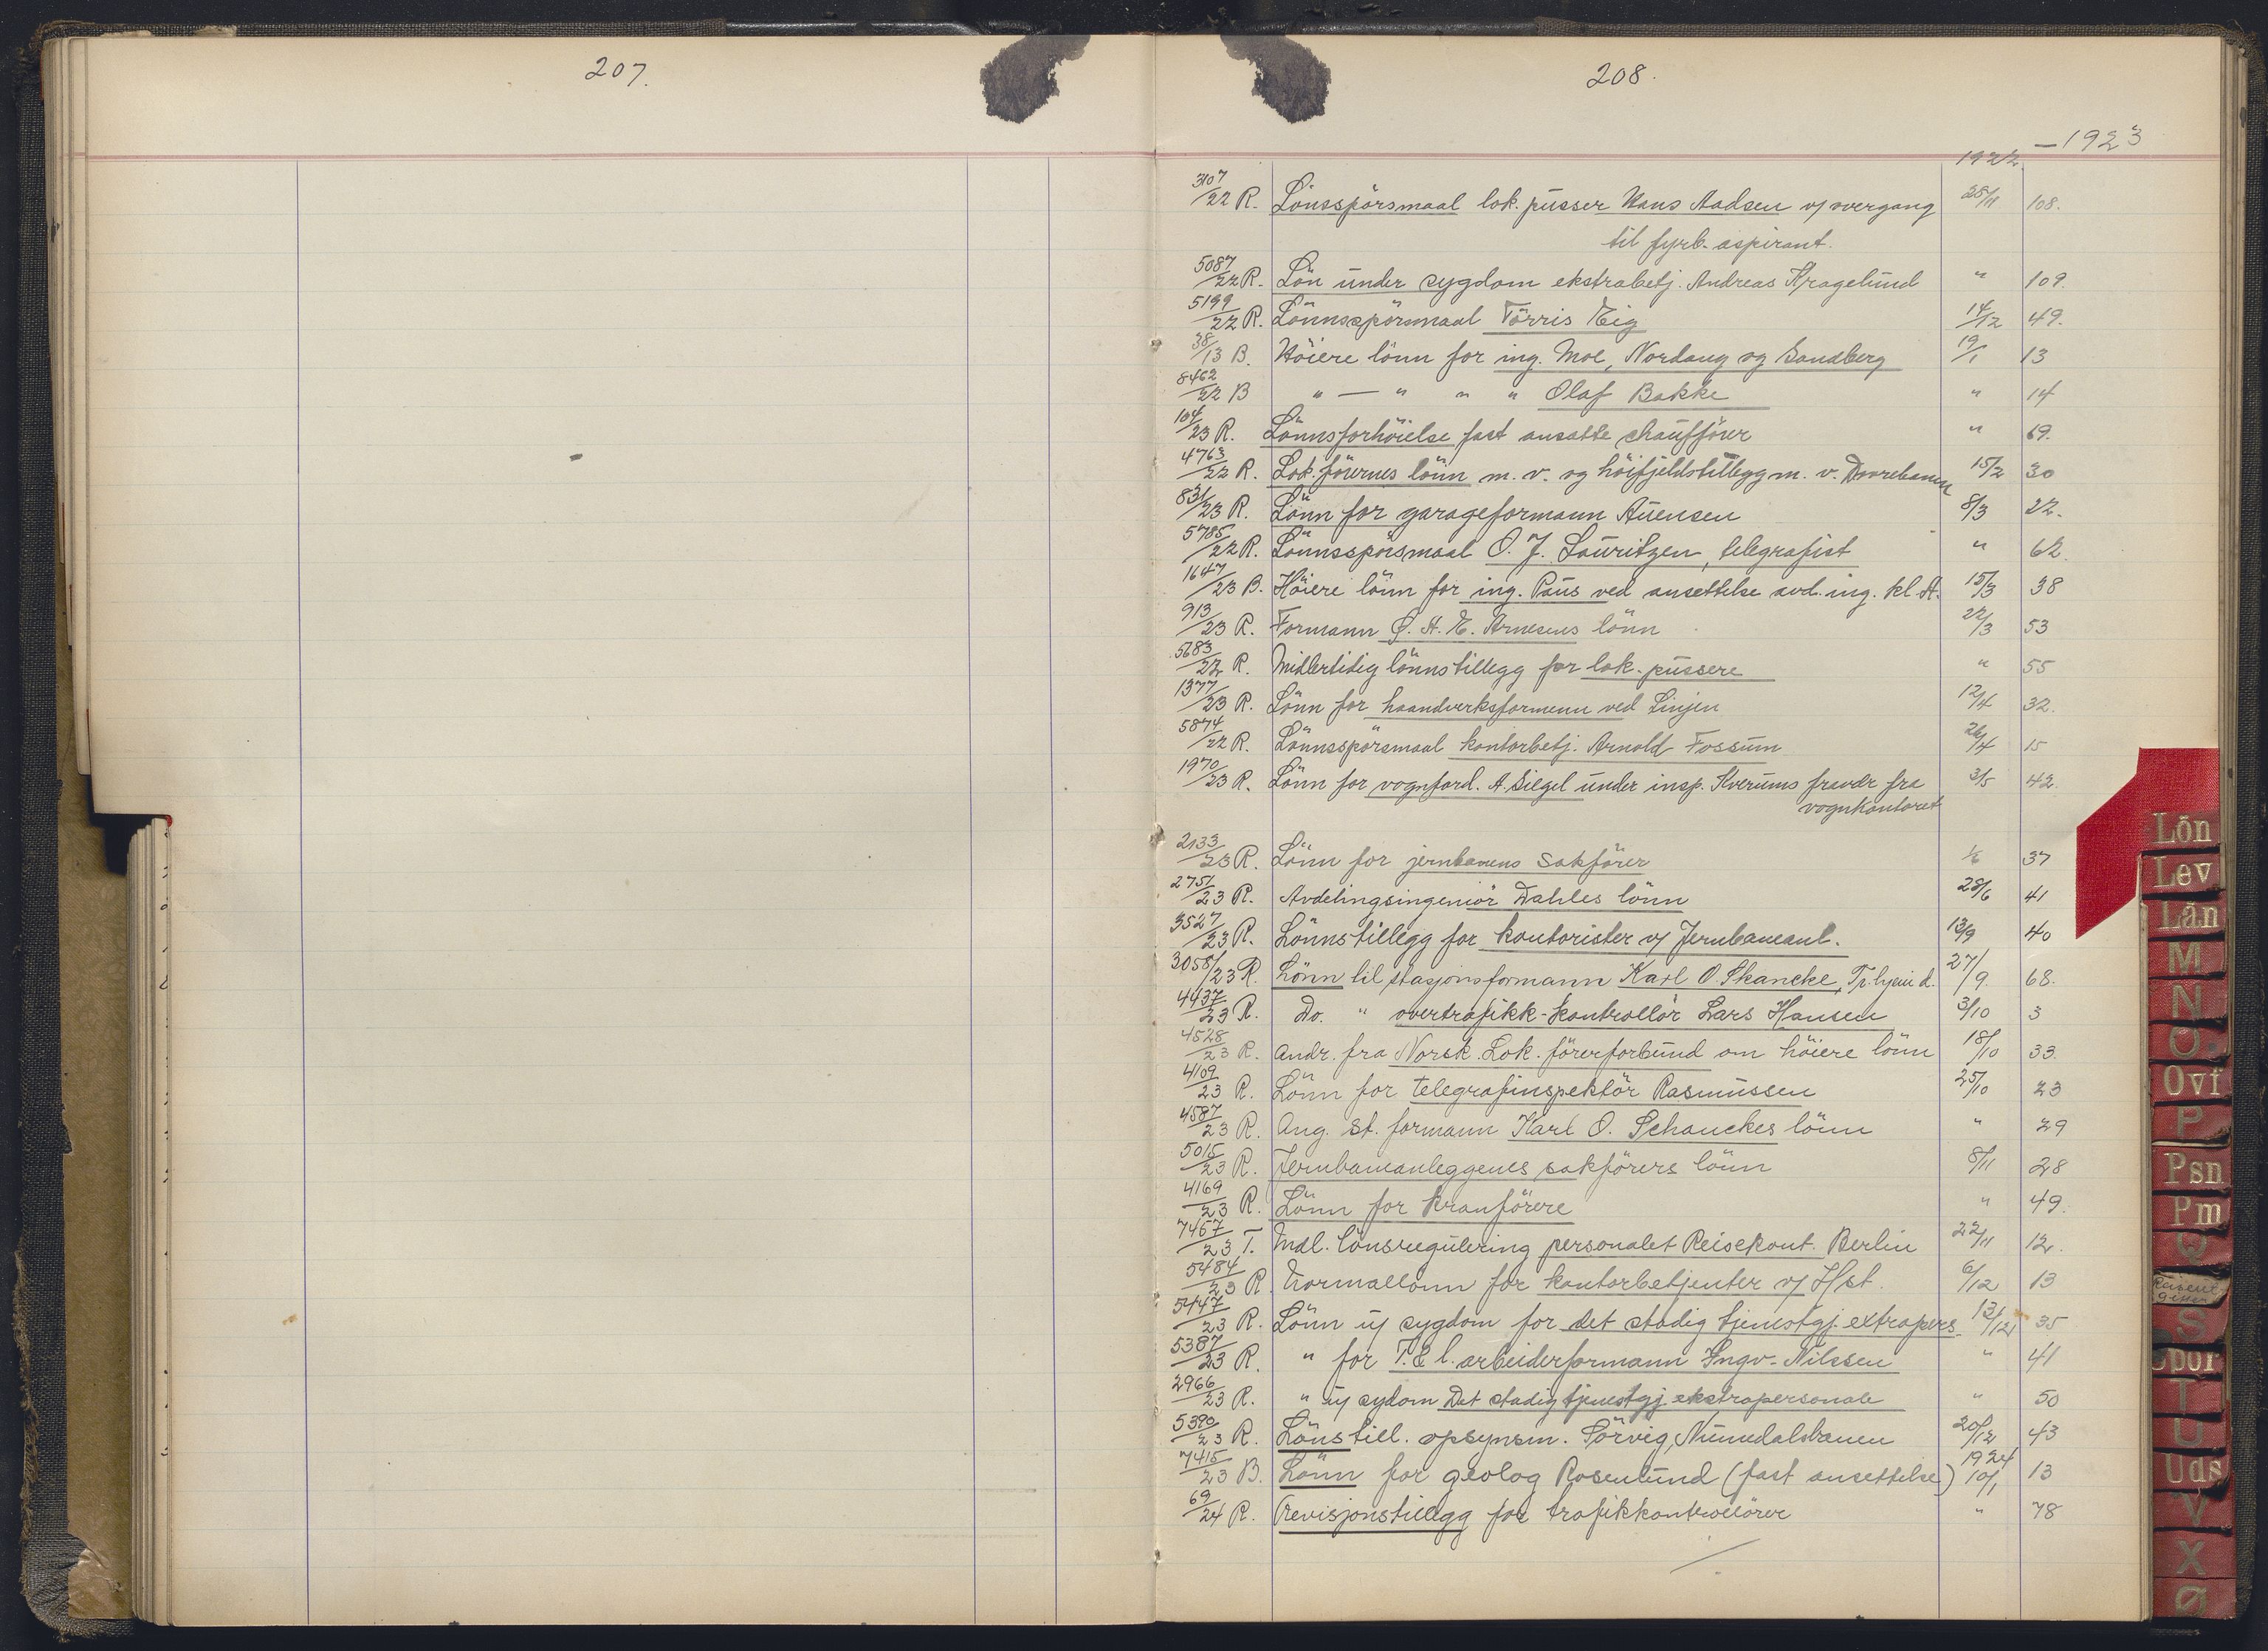 207.
208.
1922 — 1923
3107/22 R. Lönsspörsmaal lok. pusser Hans Aadsen v/ overgang 25/11 108.
til fyrb. aspirant.
5087/22 R. Lön under sygdom ekstrabetj. Andreas Kragelund " 109.
5199/22 R. Lönnsspörsmaal Törris Eig 14/12 49.
38/13 B. Höiere lönn for ing. Moe, Nordang og Sandberg 19/1 13
8462/22 B " — " " " Olaf Bakke " 14
104/23 R. Lönnsforhöielse fast ansatte chauffører " 69.
4763/22 R. Lok. förernes lönn m. v. og höifjeldstillegg m. v. Dovrebanen 15/2 30
831/23 R. Lönn for garageformann Auensen 8/3 22.
5785/22 R. Lönnsspörsmaal O. J. Lauritzen, telegrafist " 62.
1647/23 B. Höiere lönn for ing. Paus ved ansettelse avd. ing. kl. A. 15/3 38
913/23 R. Formann O. A. E. Arnesens lönn 22/3 53
5683/22 R. Midlertidig lönnstillegg for lok. pussere " 55
1377/23 R. Lönn for haandverksformenn ved Linjen 12/4 32.
5874/22 R. Lönnsspörsmaal kontorbetj. Arnold Fossum 26/4 15
1970/23 R. Lönn for vognford. A. Siegel under insp. Kverums fravær fra 3/5 42.
vognkontoret
2133/23 R. Lönn for jernbanens sakförer 1/6 37
2751/23 R. Avdelingsingeniör Dahles lönn 28/6 41
3527/23 R. Lönnstillegg for kontorister v/ Jernbaneanl. 13/9 40
3058/23 R. Lönn til stasjonsformann Karl O. Skancke, Tr.hjem d. 27/9. 68.
4437/23 R. Do. " overtrafikk-kontrollör Lars Hansen 3/10 3
4528/23 R. Andr. fra Norsk. Lok. förerforbund om höiere lönn 18/10 33.
4109/23 R. Lönn for telegrafinspektör Rasmussen 25/10 23
4587/23 R. Ang. st. formann Karl O. Schanckes lönn " 29
5015/23 R. Jernbaneanleggenes sakförers lönn 8/11 28
4169/23 R. Lönn for kranförere " 49.
7467/23 T. Mdl. lönsregulering personalet Reisekont. Berlin 22/11 12.
5484/23 R. Normallönn for kontorbetjenter v/ Hst. 6/12 13
5447/23 R. Lönn u/ sygdom for det stadig tjenestgj. extrapers. 13/12 35
5387/23 R. " for T. & l. arbeiderformann Ingv. Nilssen " 41
2966/23 R. " u/ sydom Det stadig tjenestgj. ekstrapersonale " 50
5390/23 R. Lönstill. opsynsm. Sörvig, Numedalsbanen 20/12 43
1924
7415/23 B. Lönn for geolog Rosenlund (fast ansettelse) 10/1 13
69/24 R. Revisjonstillegg for trafikkontrollörer " 78
Lön
Lev
Lån
M
N
O
Ovf
P
Psn
Pm
Q
S
Spor
T
U
Uds
V
X
Ø